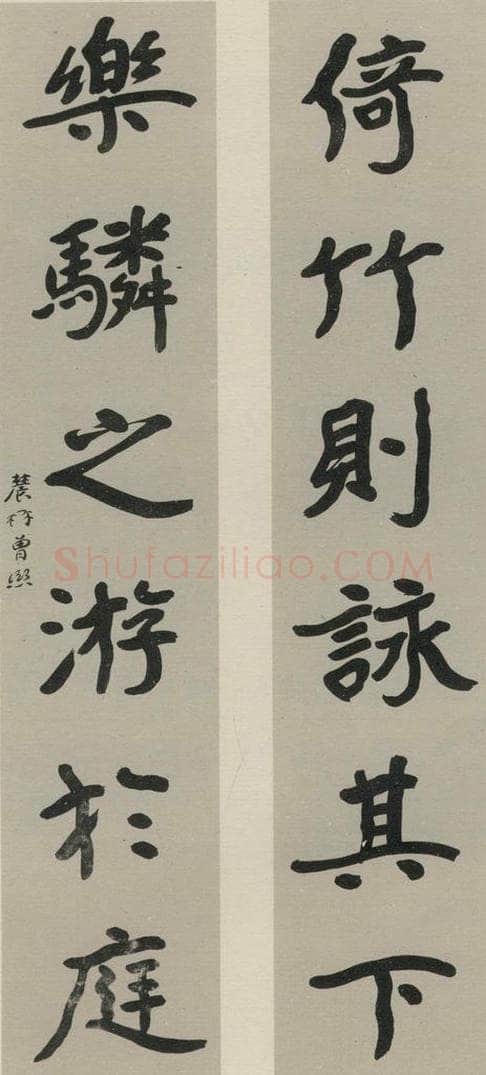 倚竹則詠其下
樂驎之游於庭
農髯曾熙
Shufaziliao.COM